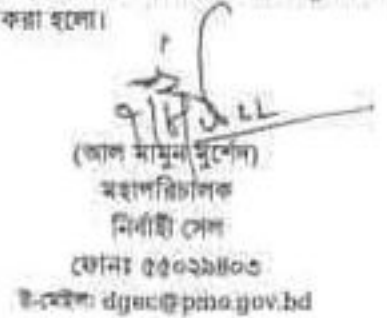 করা হলো।
(আল মামুন মুর্শেদ)
মহাপরিচালক
নির্বাহী সেল
ফোনঃ ৫৫০২৯৪০৩
ই-মেইল: dgec@pmo.gov.bd